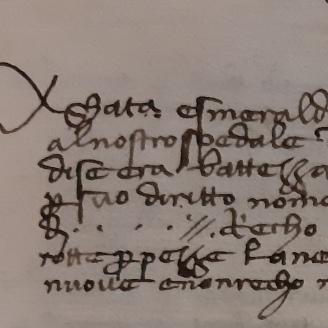 Ghata esmerald
al nostro spedale
disse era battezza
p suo diritto nome
d. . . . //. Recho
rotte p pezze lane
nuove e non recho